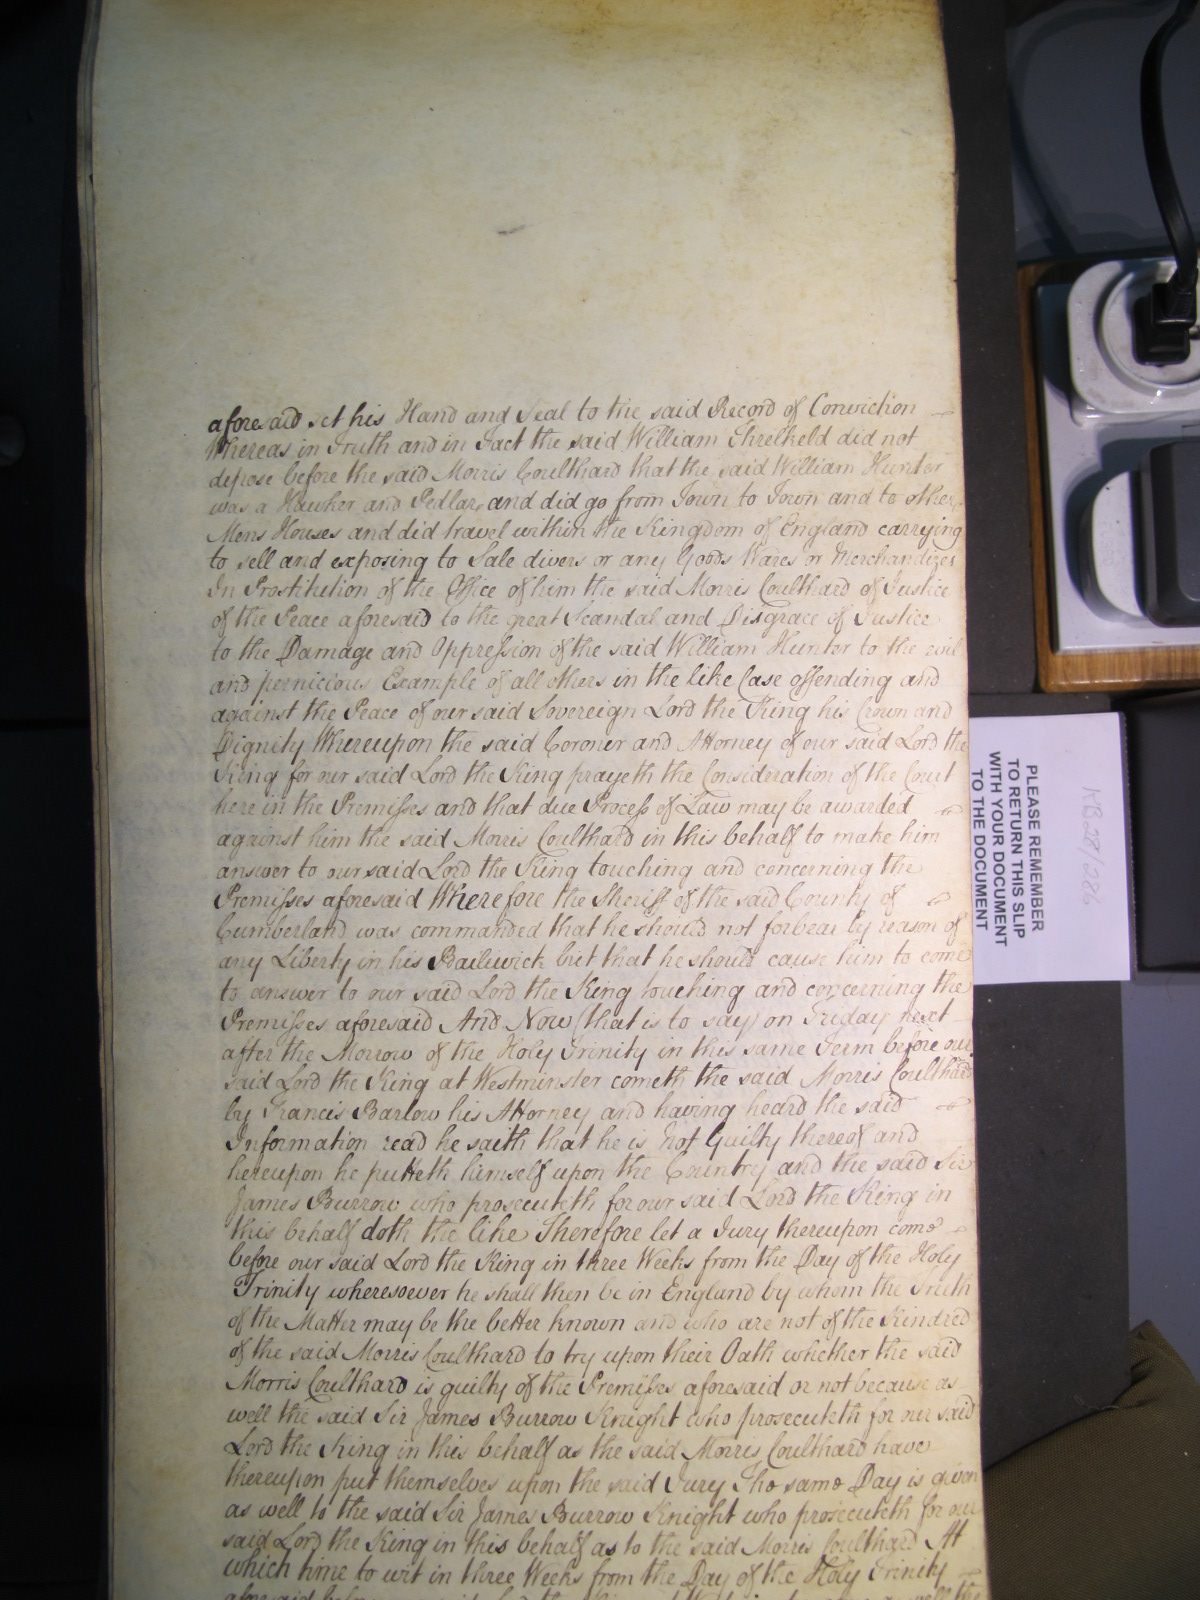 aforesaid set his Hand and Seal to the said Record of Conviction
Whereas in Truth and in Fact the said William Threlkeld did not
depose before the said Morris Coulthard that the said William Hunter
was a Hawker and Pedlar and did go from Town to Town and to other
Mens Houses and did travel within the Kingdom of England carrying
to sell and exposing to Sale divers or any Goods Wares or Merchandizes
In Prostitution of the Office of him the said Morris Coulthard of Justice
of the Peace aforesaid to the great Scandal and Disgrace of Justice
to the Damage and Oppression of the said William Hunter to the evil
and pernicious Example of all others in the like Case offending and
against the Peace of our said Sovereign Lord the King his Crown and
Dignity Whereupon the said Coroner and Attorney of our said Lord the
King for our said Lord the King prayeth the Consideration of the Court
here in the Premisses and that due Process of Law may be awarded
against him the said Morris Coulthard in this behalf to make him
answer to our said Lord the King touching and concerning the
Premisses aforesaid Wherefore the Sheriff of the said County of
Cumberland was commanded that he should not forbear by reason of
any Liberty in his Bailiwick but that he should cause him to come
to answer to our said Lord the King touching and concerning the
Premisses aforesaid And Now (that is to say) on Friday next
after the Morrow of the Holy Trinity in this same Term before our
said Lord the King at Westminster cometh the said Morris Coulthard
by Francis Barlow his Attorney and having heard the said
Information read he saith that he is Not Guilty thereof and
hereupon he putteth himself upon the Country and the said Sir
James Burrow who prosecuteth for our said Lord the King in
this behalf doth the like Therefore let a Jury thereupon come
before our said Lord the King in three Weeks from the Day of the Holy
Trinity wheresoever he shall then be in England by whom the Truth
of the Matter may be the better known and who are not of the Kindred
of the said Morris Coulthard to try upon their Oath whether the said
Morris Coulthard is guilty of the Premisses aforesaid or not because as
well the said Sir James Burrow Knight who prosecuteth for our said
Lord the King in this behalf as the said Morris Coulthard have
thereupon put themselves upon the said Jury The same Day is given
as well to the said Sir James Burrow Knight who prosecuteth for our
said Lord the King in this behalf as to the said Morris Coulthard At
which time to wit in three Weeks from the Day of the Holy Trinity
PLEASE REMEMBER
TO RETURN THIS SLIP
WITH YOUR DOCUMENT
TO THE DOCUMENT
KB 28/286